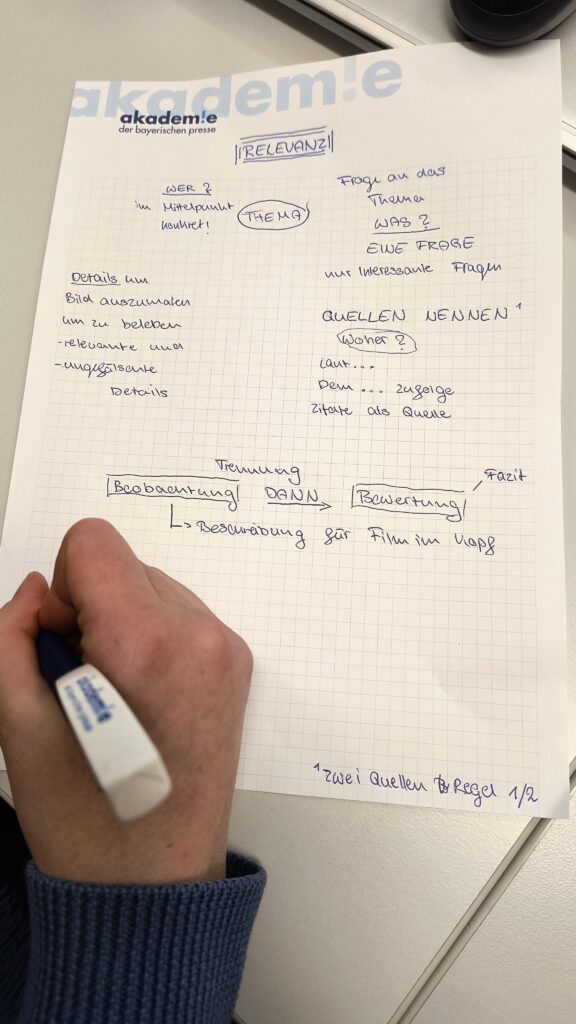 akadem!e
akadem!e
der bayerischen presse
RELEVANZ
WER ?
im Mittelpunkt
konkret!
THEMA
Frage an das
Thema
WAS ?
EINE FRAGE
nur interessante Fragen
Details um
Bild auszumalen
um zu beleben
-relevante und
-ungefälschte
Details
QUELLEN NENNEN ¹
Woher ?
Laut...
Dem ... zufolge
Zitate als Quelle
Trennung
Beobachtung DANN Bewertung
Fazit
Beschreibung für Film im Kopf
¹ Zwei Quellen Regel 1/2
akadem!e